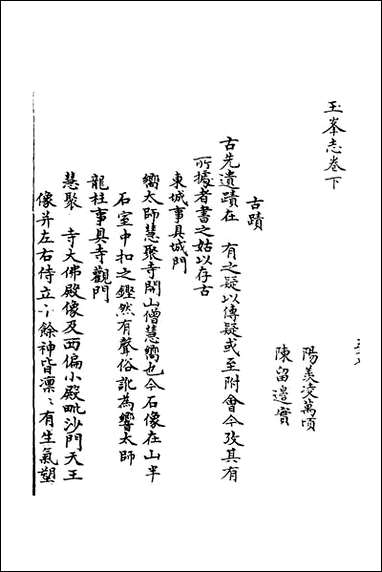 玉峯志卷下
陽羡凌萬頃
陳留邊實
古蹟
古先遺蹟在　有之疑以傳疑或至附會今攷其有
所據者書之姑以存古
東城事具城門
嚮太師慧聚寺開山僧慧嚮也今石像在山半
石室中扣之鏗然有聲俗訛為響太師
龍柱事具寺觀門
慧聚　寺大佛殿像及西偏小殿毗沙門天王
像并左右侍立十餘神皆凛〻有生氣塑